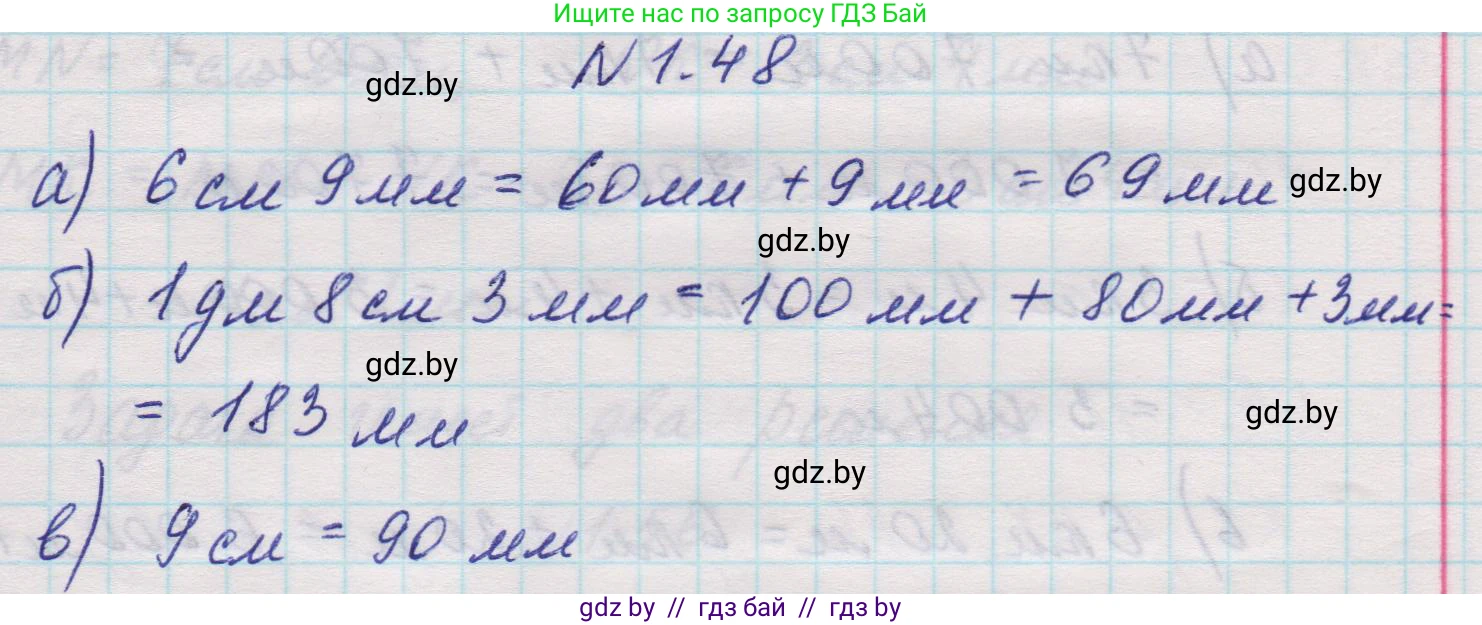 Ищите нас по запросу ГДЗ Бай
N 1.48
gdz.by
а) 6 см 9 мм = 60 мм + 9 мм = 69 мм
gdz.by
gdz.by
б) 1 дм 8 см 3 мм = 100 мм + 80 мм + 3 мм =
gdz.by
= 183 мм
gdz.by
gdz.by
в) 9 см = 90 мм
gdz by // гдз бай // гдз by